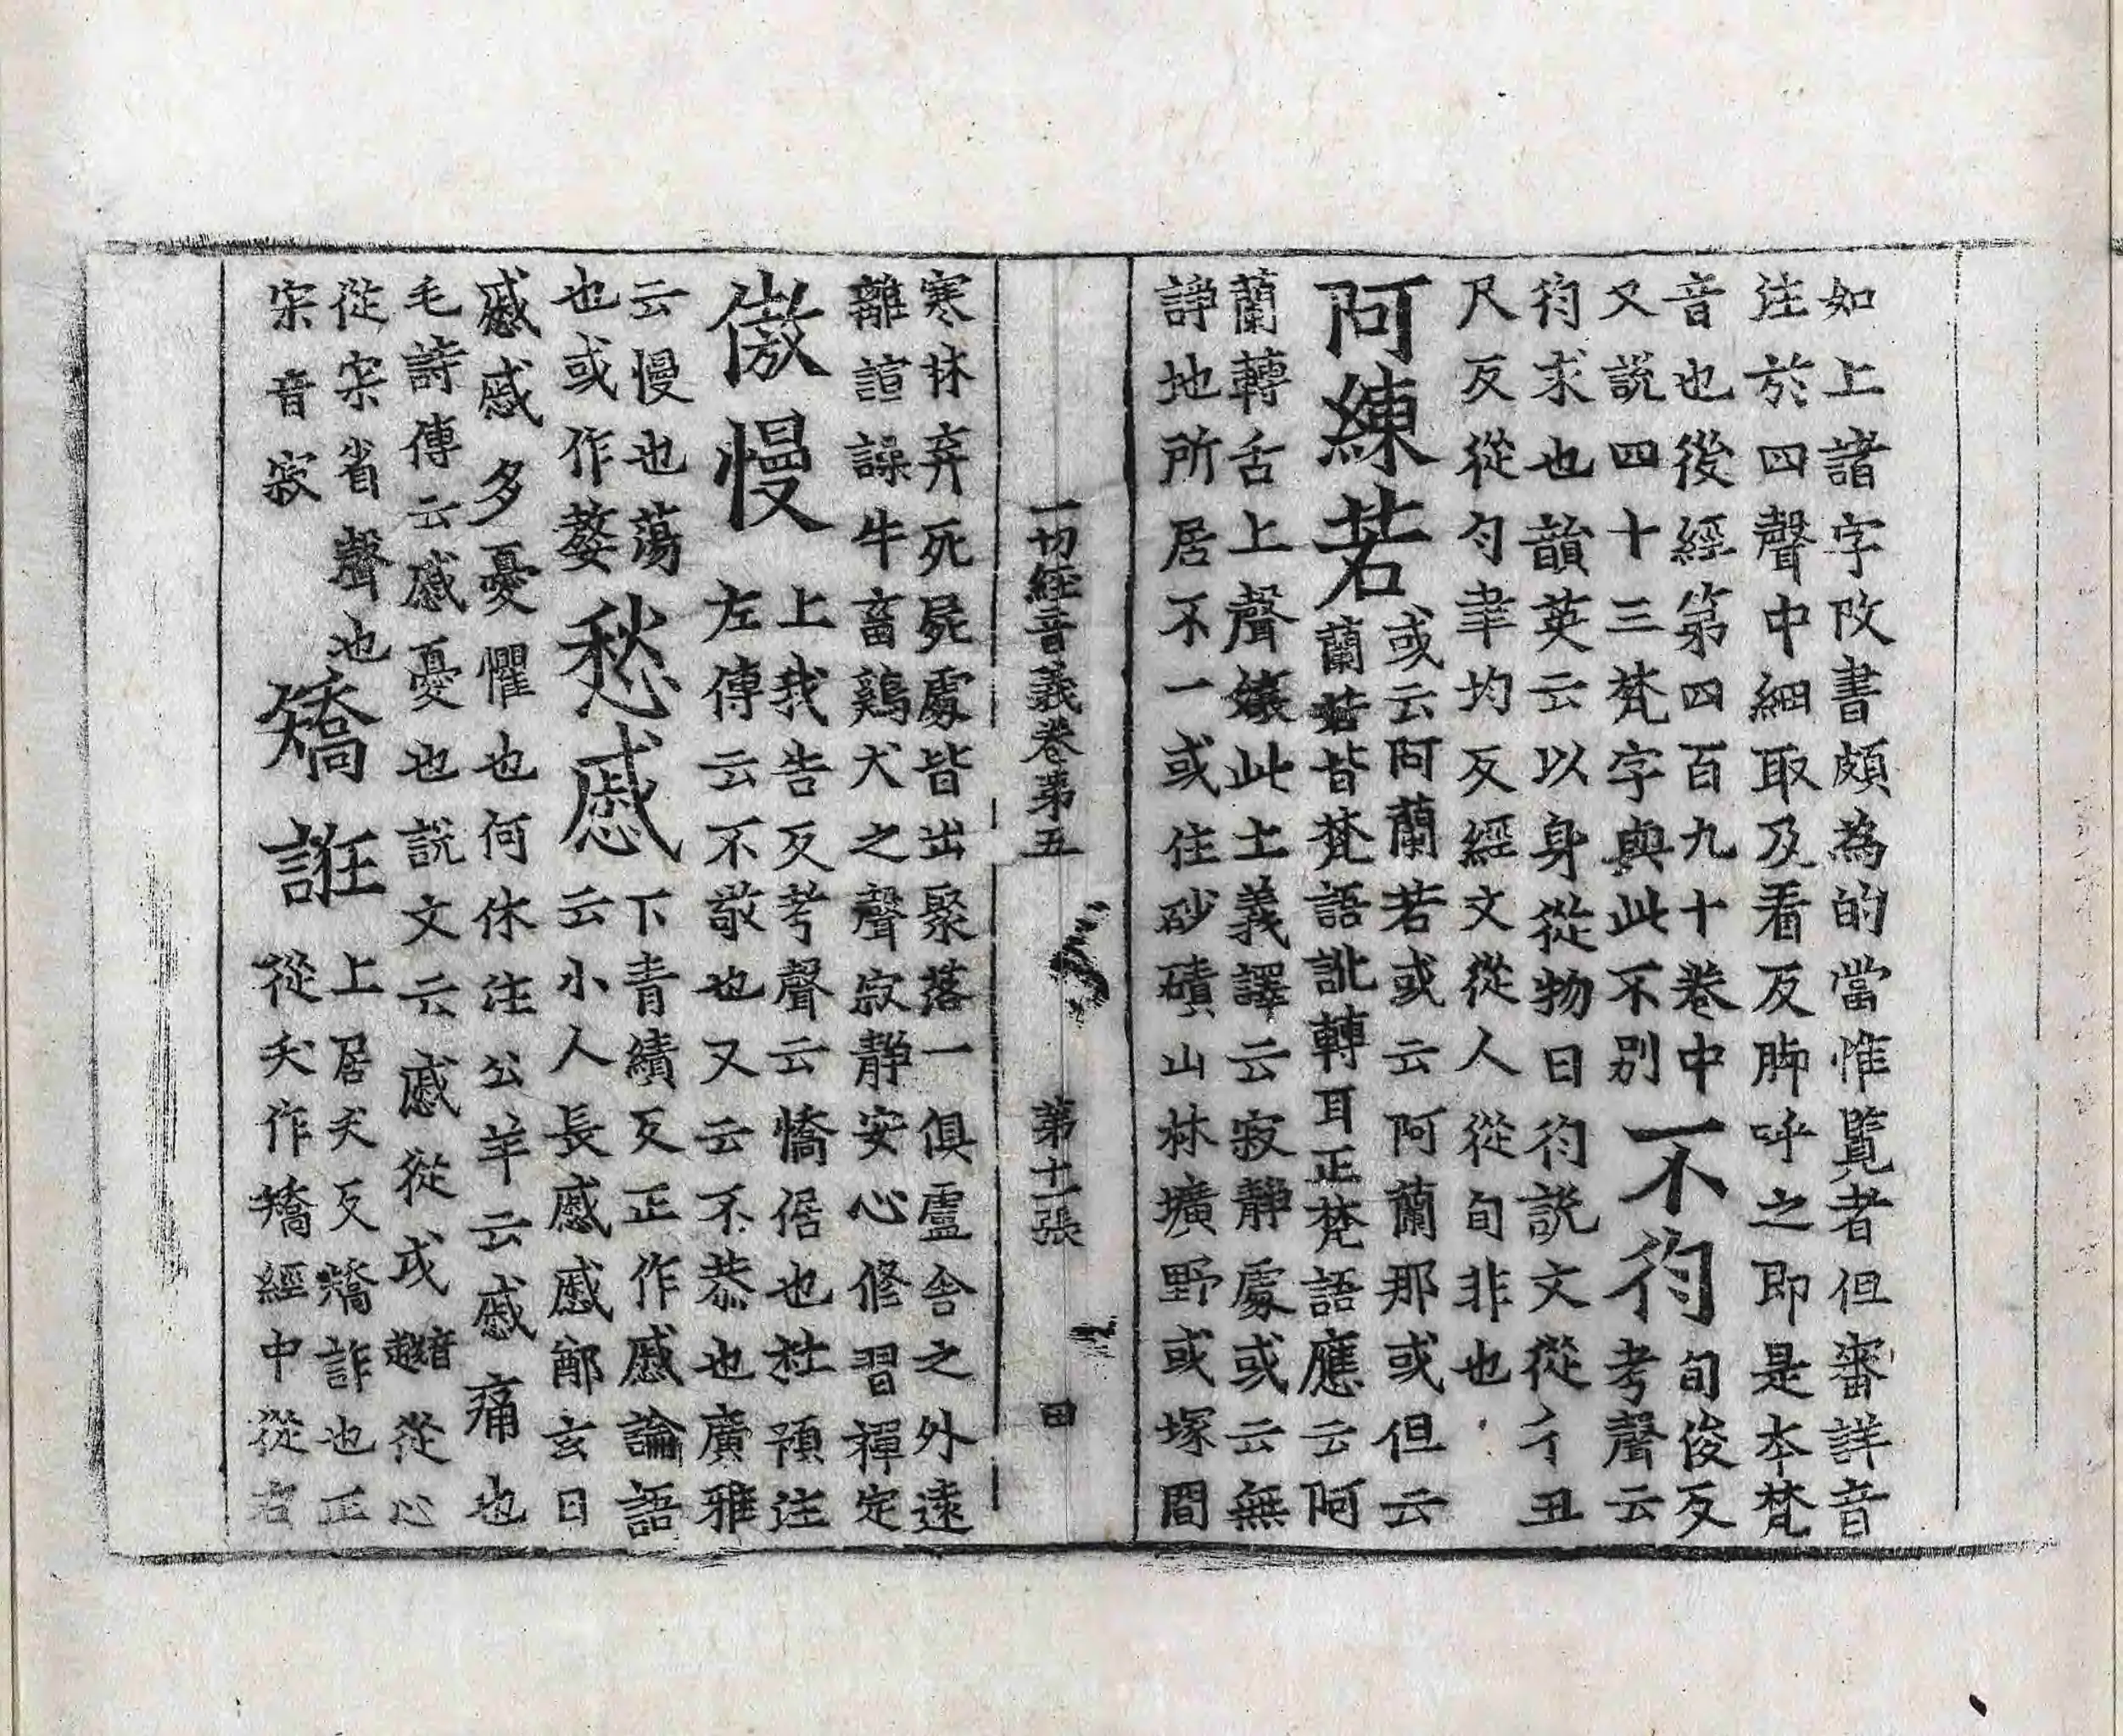 如上諸字攺書頗為的當惟覧者但審詳音
注於四聲中細取及看反脚呼之即是本梵
音也後經第四百九十卷中
又説四十三梵字與此不別
不徇
旬俊反
考聲云
徇求也韻英云以身從物日徇説文從彳丑
尺反從勻聿均反經文從人從旬非也
阿練若
或云阿蘭若或云阿蘭那或但云
蘭若皆梵語訛轉耳正梵語應云阿
蘭轉舌上聲孃此土義譯云寂靜處或云無
諍地所居不一或住砂磧山林壙野或塚間
一切經音義卷第五
第十一張
田
寒林弃死屍處皆出聚落一俱盧舎之外遠
離諠譟牛畜鷄犬之聲寂靜安心修習禪定
傲慢
上我告反考聲云憍倨也杜預注
左傳云不敬也又云不恭也廣雅
云慢也蕩
也或作嫯
愁慼
下青績反正作慼論語
云小人長慼慼鄭玄日
慼慼多憂懼也何休注公羊云慼痛也
毛詩傳云慼憂也説文云戚從戉音越從心
從宋省聲也
宋音寂
矯誑
上居夭反矯詐也正
從夭作矯經中從右